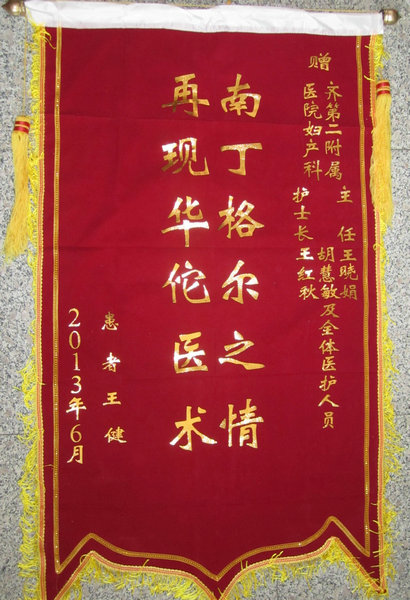 赠 齐第二附属
医院妇产科
主任王晓娟
胡慧敏及全体医护人员
护士长王红秋
南丁格尔之情
再现华佗医术
患者王健
2013年6月